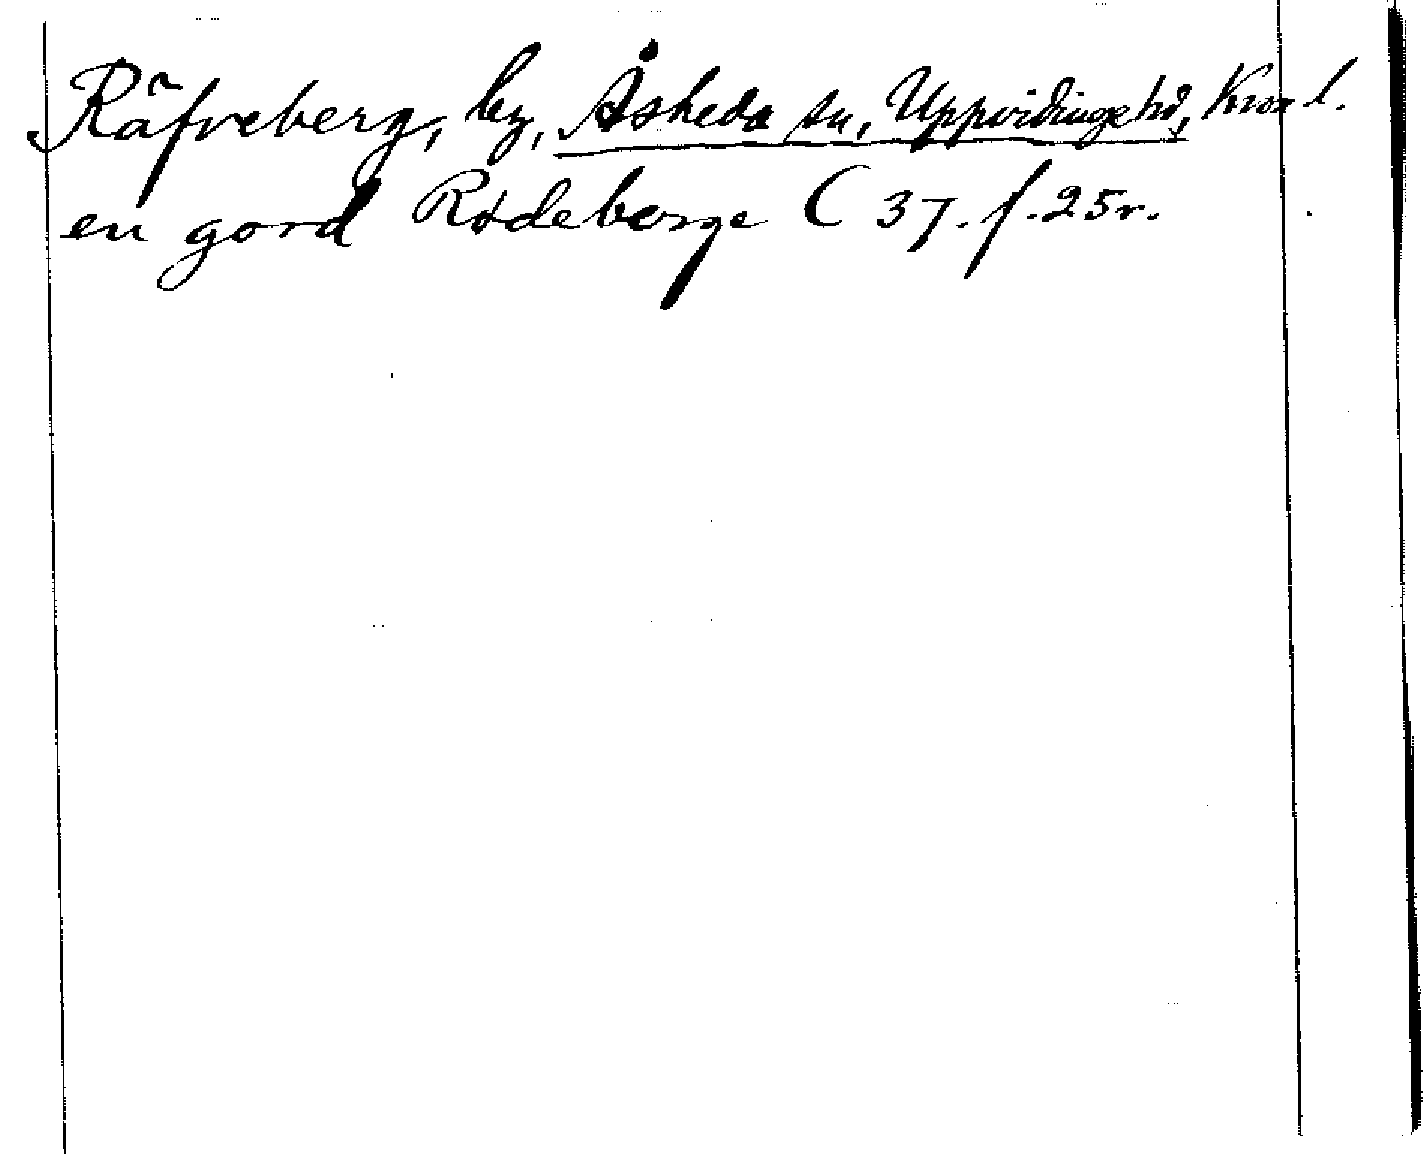 Räfreberg, by, Åsheda sn, Uppvidinge hd, Kron l.
en gord Rödeberge C 37. f. 25r.